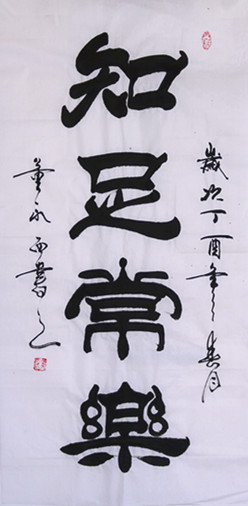 歲次丁酉年癸月
知足常樂
董永西書之